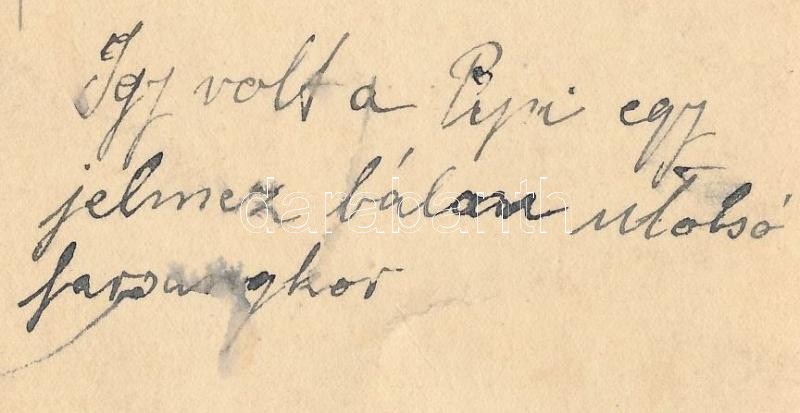 Igy volt a Pipi egy
jelmez bálan utolsó
farsangkor
darabanth